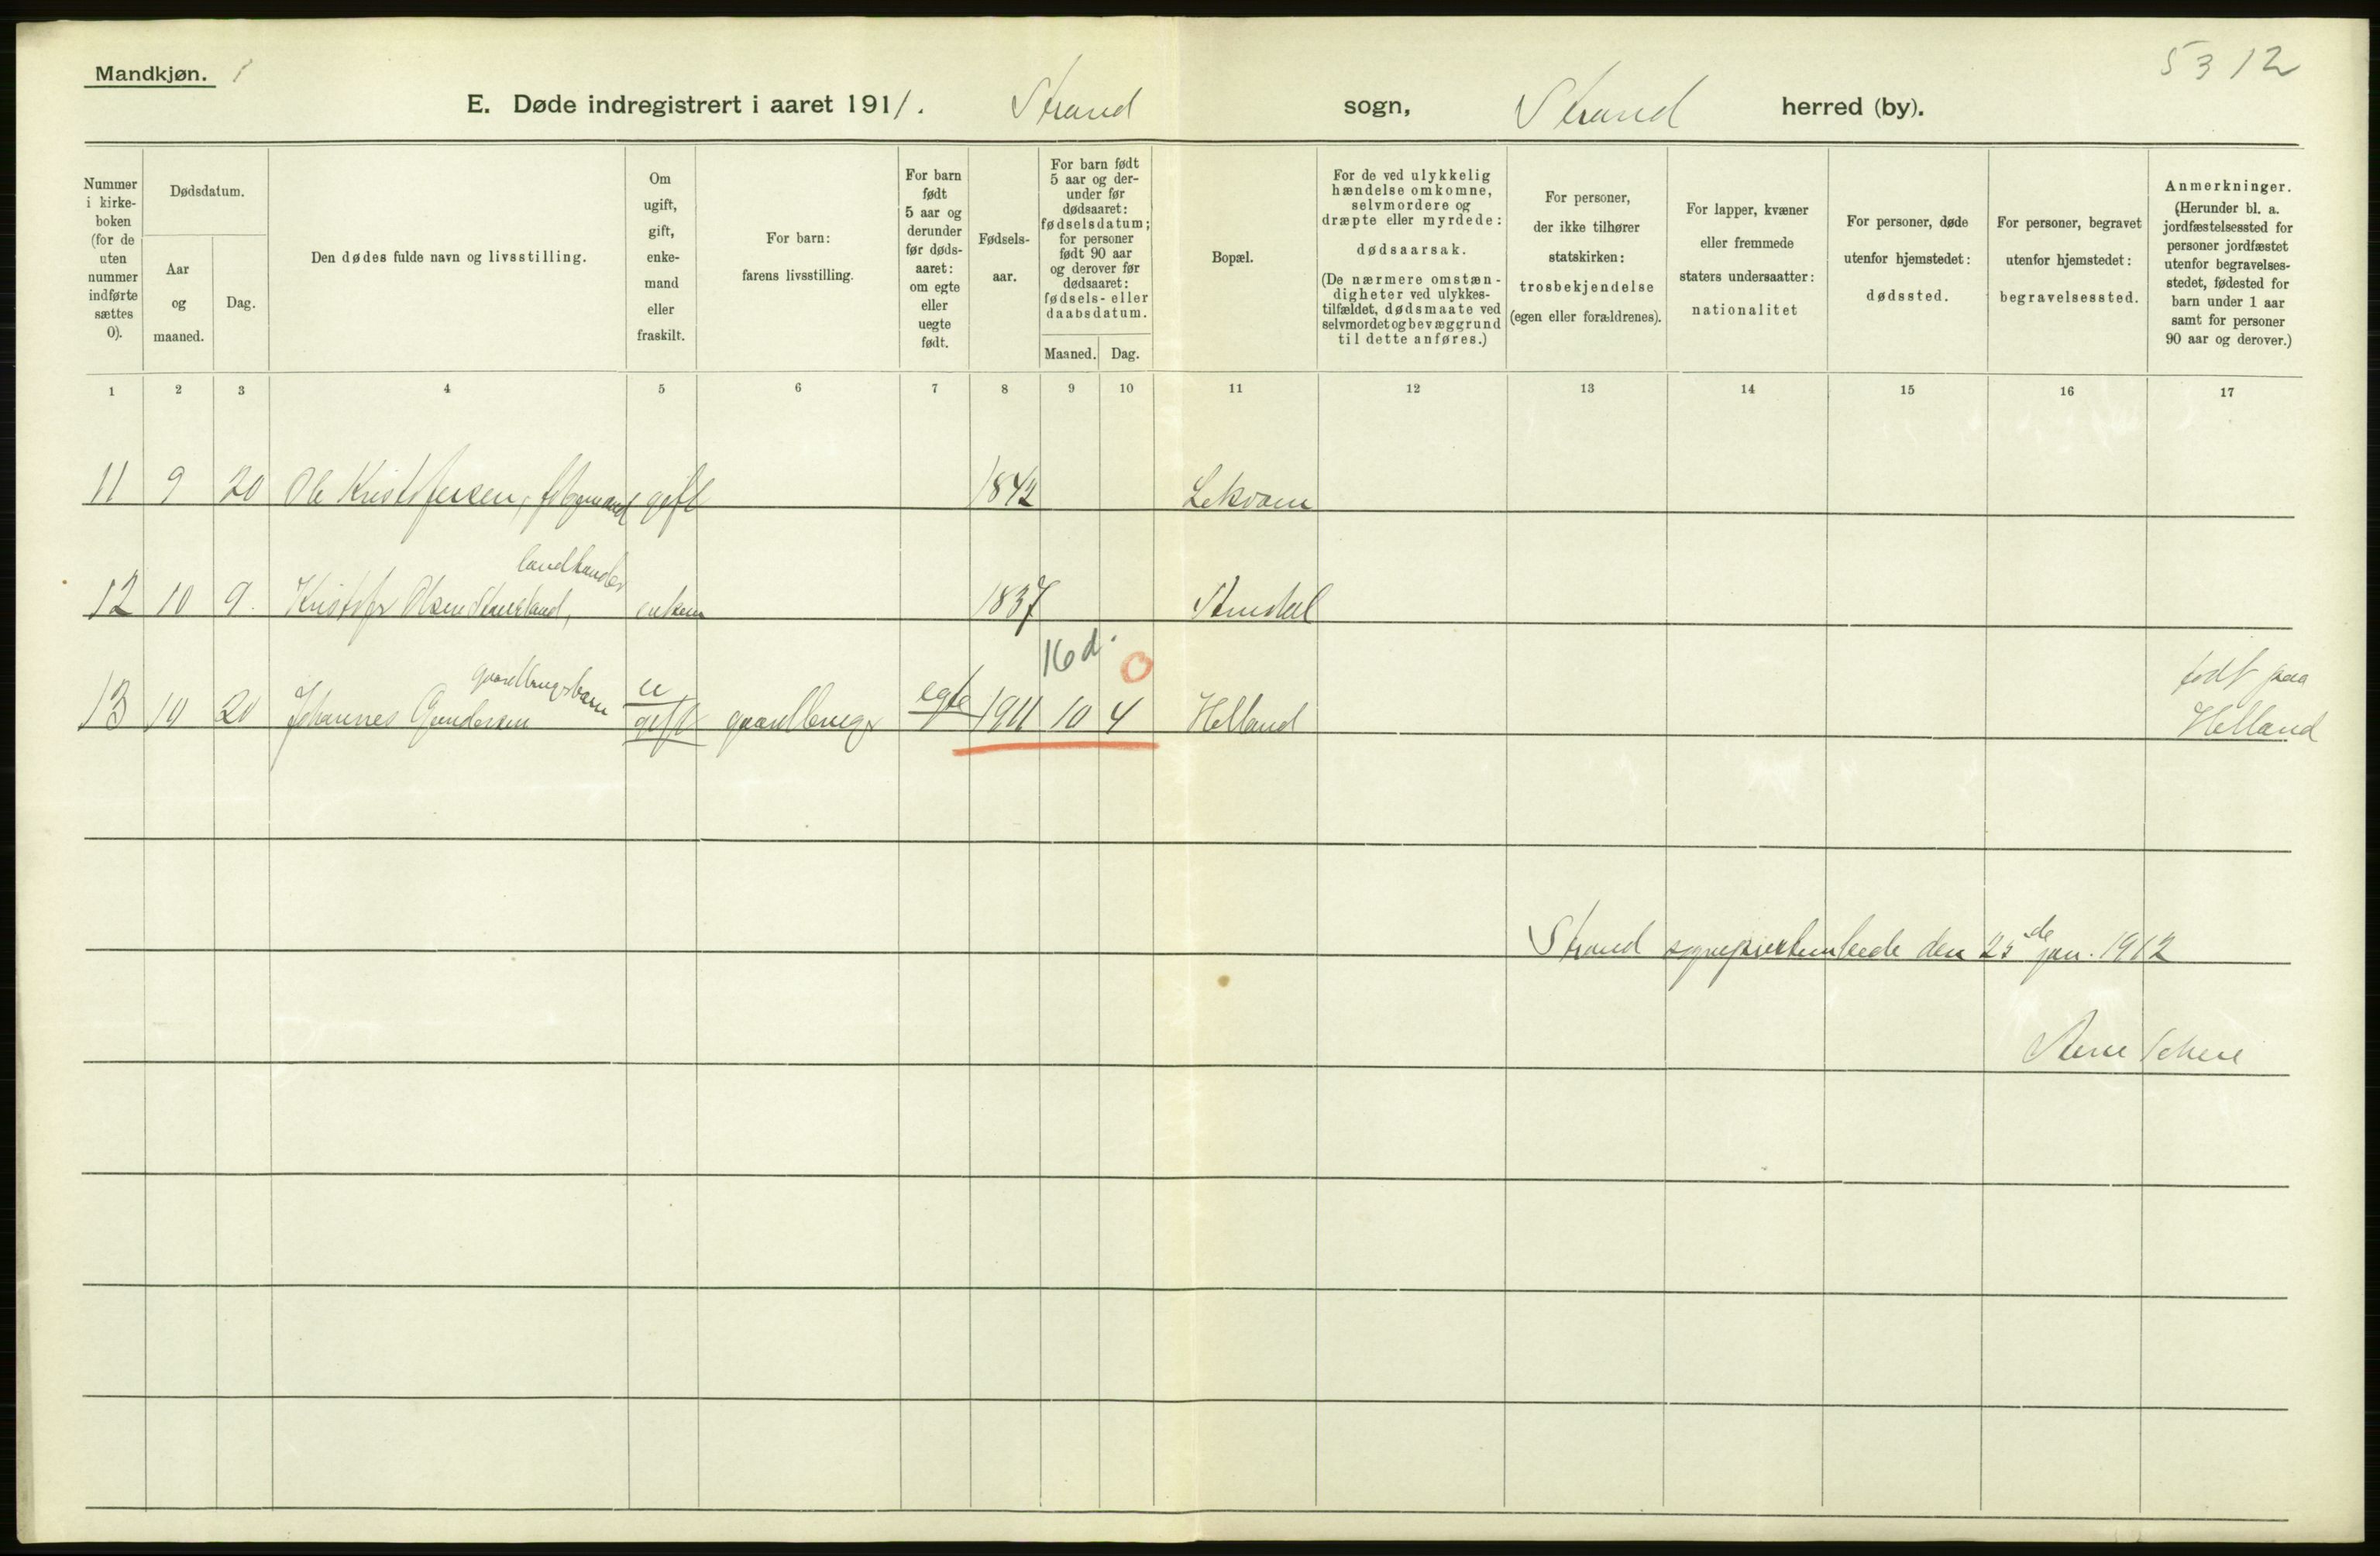 Mandkjøn. 1
5312
E. Døde indregistrert i aaret 1911. Strand sogn, Strand herred (by).
Nummer i kirke-boken (for de uten nummer indførte sættes 0).
Dødsdatum.
Aar og maaned.
Dag.
Den dødes fulde navn og livsstilling.
Om ugift, gift, enke-mand eller fraskilt.
For barn: farens livsstilling.
For barn født 5 aar og derunder før døds-aaret: om egte eller uegte født.
Fødsels-aar.
For barn født 5 aar og der-under før dødsaaret: fødselsdatum; for personer født 90 aar og derover før dødsaaret: fødsels- eller daabsdatum.
Maaned. Dag.
Bopæl.
For de ved ulykkelig hændelse omkomne, selvmordere og dræpte eller myrdede: dødsaarsak. (De nærmere omstæn-digheter ved ulykkes-tilfældet, dødsmaate ved selvmordet og bevæggrund til dette anføres.)
For personer, der ikke tilhører statskirken: trosbekjendelse (egen eller forældrenes).
For lapper, kvæner eller fremmede staters undersaatter: nationalitet
For personer, døde utenfor hjemstedet: dødssted.
For personer, begravet utenfor hjemstedet: begravelsessted.
Anmerkninger. (Herunder bl. a. jordfæstelsessted for personer jordfæstet utenfor begravelses-stedet, fødested for barn under 1 aar samt for personer 90 aar og derover.)
1 2 3 4 5 6 7 8 9 10 11 12 13 14 15 16 17
11 9 20 Ole Kristofersen, gift 1842 Lekvam
landhandler
12 10 9. Kristofer Olsen enkem 1837
16 d. 0
gaardbrugsbarn u født paa
13 10 20 Johannes Gundersen gift gaardbruger egte 1911 10 4 Helland Helland
Strand sogneprestembede den 25de jan. 1912